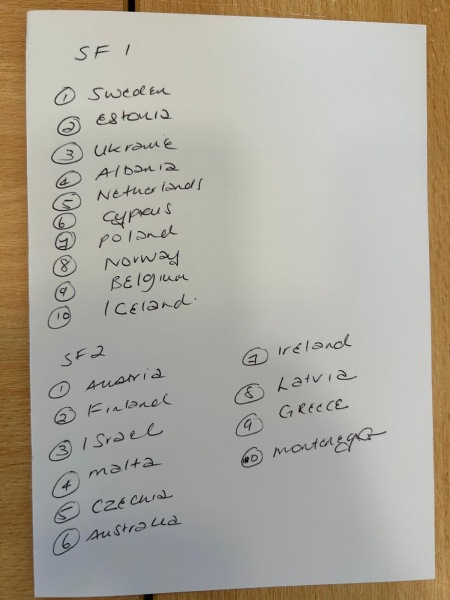 SF 1
① Sweden
② Estonia
③ Ukraine
④ Albania
⑤ Netherlands
⑥ Cyprus
⑦ Poland
⑧ Norway
⑨ Belgium
⑩ Iceland
SF2
① Austria
② Finland
③ Israel
④ malta
⑤ Czechia
⑥ Australia
⑦ Ireland
⑧ Latvia
⑨ Greece
⑩ montenegro